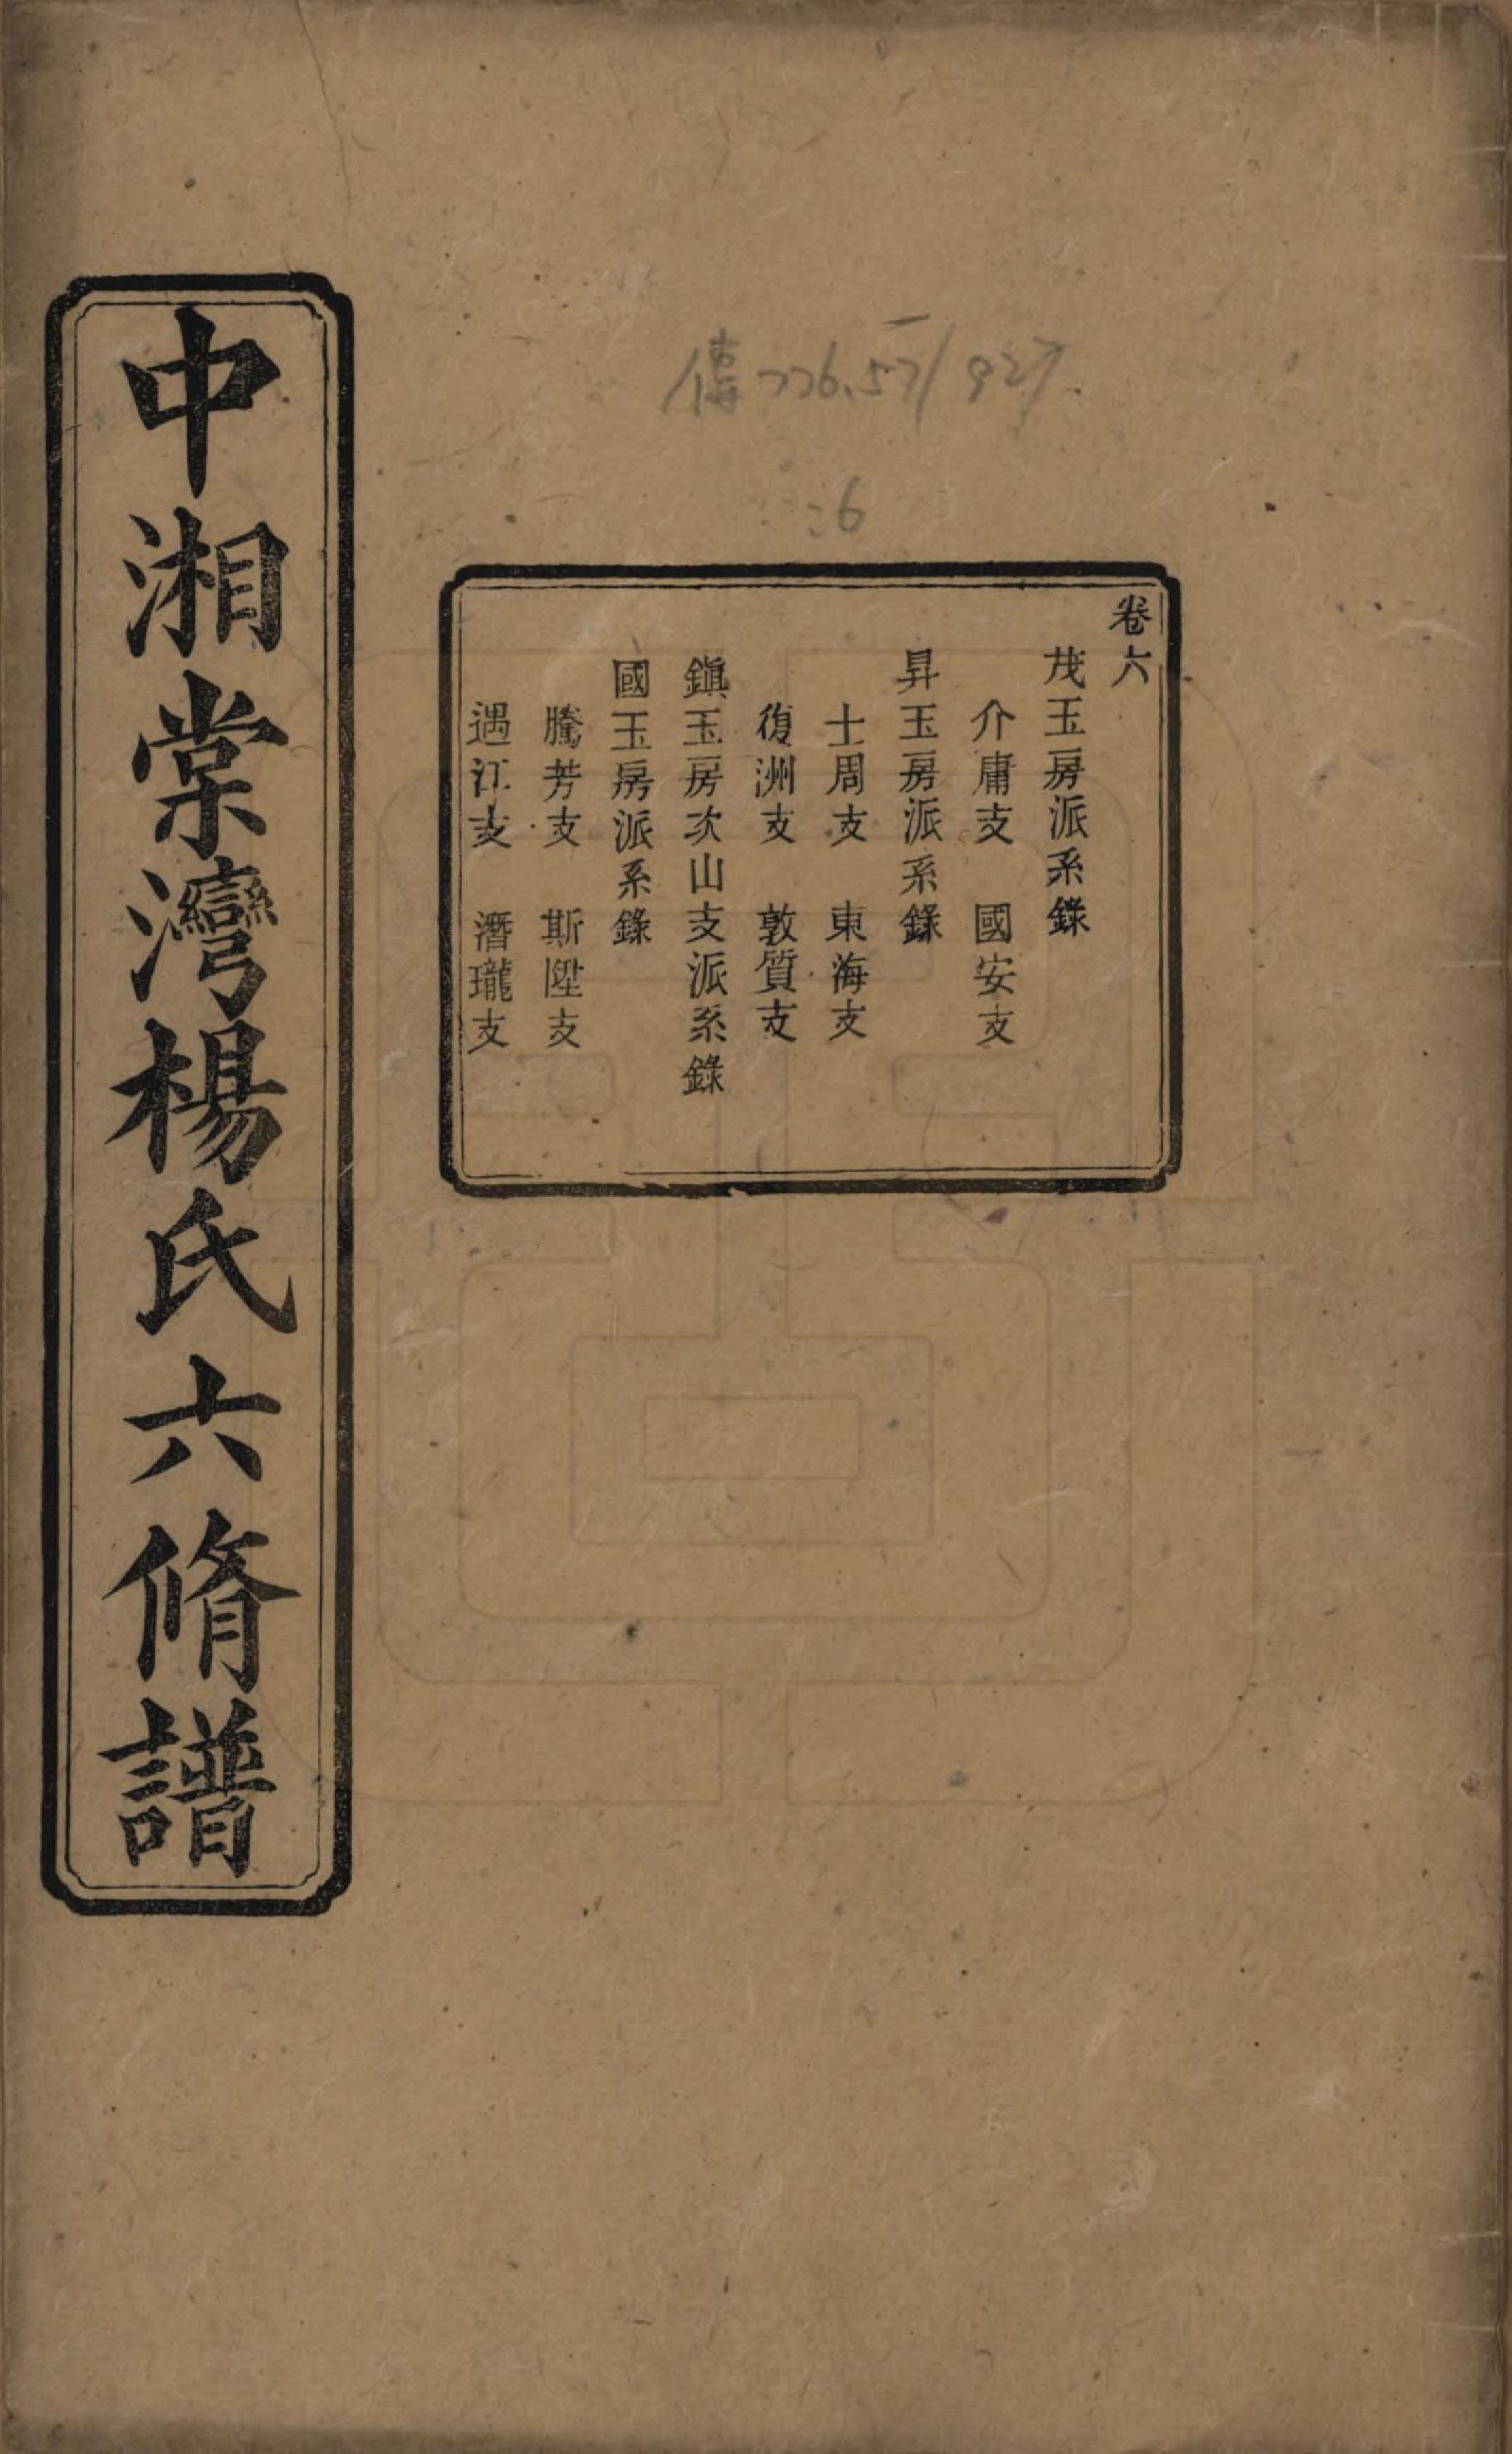 傳776.57/927
:6
卷六
茂玉房派系錄
介庸支　國安支
昇玉房派系錄
士周支　東海支
復洲支　敦質支
鎭玉房次山支派系錄
國玉房派系錄
騰芳支　斯陞支
遇江支　潛瓏支
中湘棠灣楊氏六脩譜